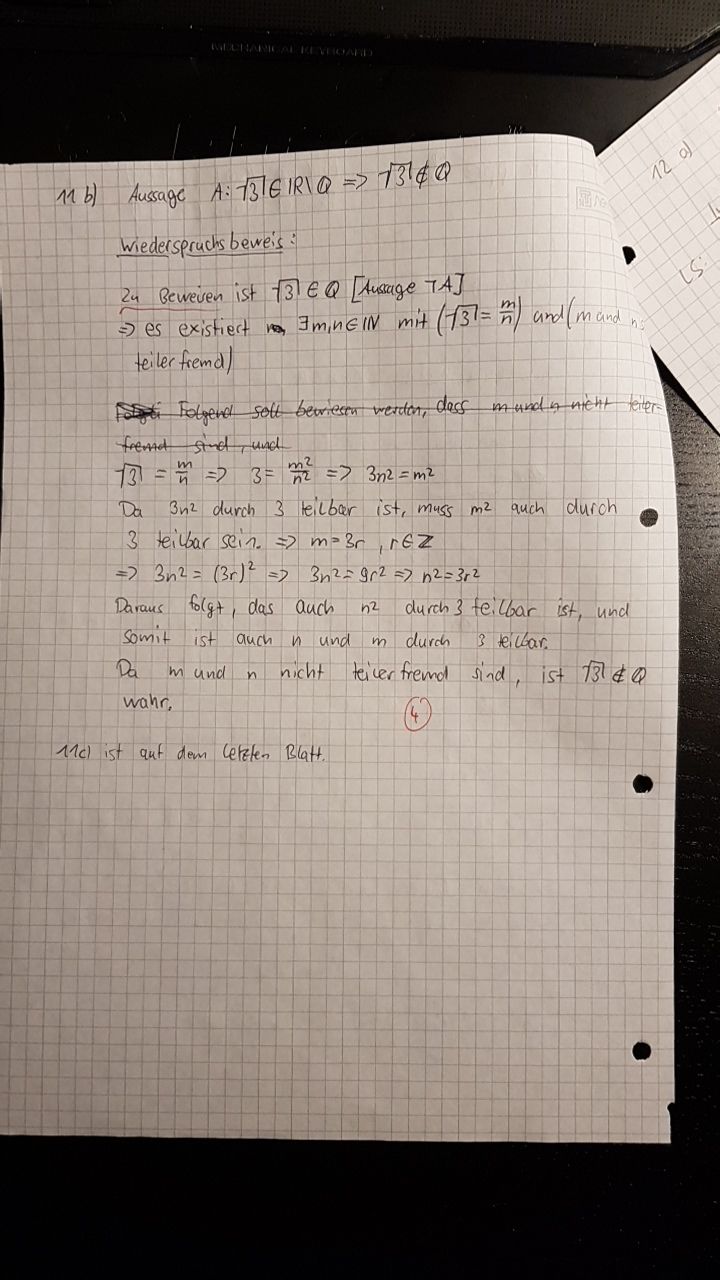 MECHANICAL KEYBOARD
12 a)
11 b) Aussage A: √3 ∈ ℝ\ℚ => √3 ∉ ℚ
Wiederspruchsbeweis:
Zu Beweisen ist √3 ∈ ℚ [Aussage ¬A]
=> es existiert ∃m,n∈ℕ mit (√3 = m/n) und (m und n
teilerfremd)
Folgend soll bewiesen werden, dass m und n nicht teiler-
fremd sind, und
√3 = m/n => 3 = m²/n² => 3n² = m²
Da 3n² durch 3 teilbar ist, muss m² auch durch
3 teilbar sein. => m = 3r , r∈ℤ
=> 3n² = (3r)² => 3n² = 9r² => n² = 3r²
Daraus folgt, das auch n² durch 3 teilbar ist, und
somit ist auch n und m durch 3 teilbar.
Da m und n nicht teilerfremd sind, ist √3 ∉ ℚ
wahr.
4
11c) ist auf dem letzten Blatt.